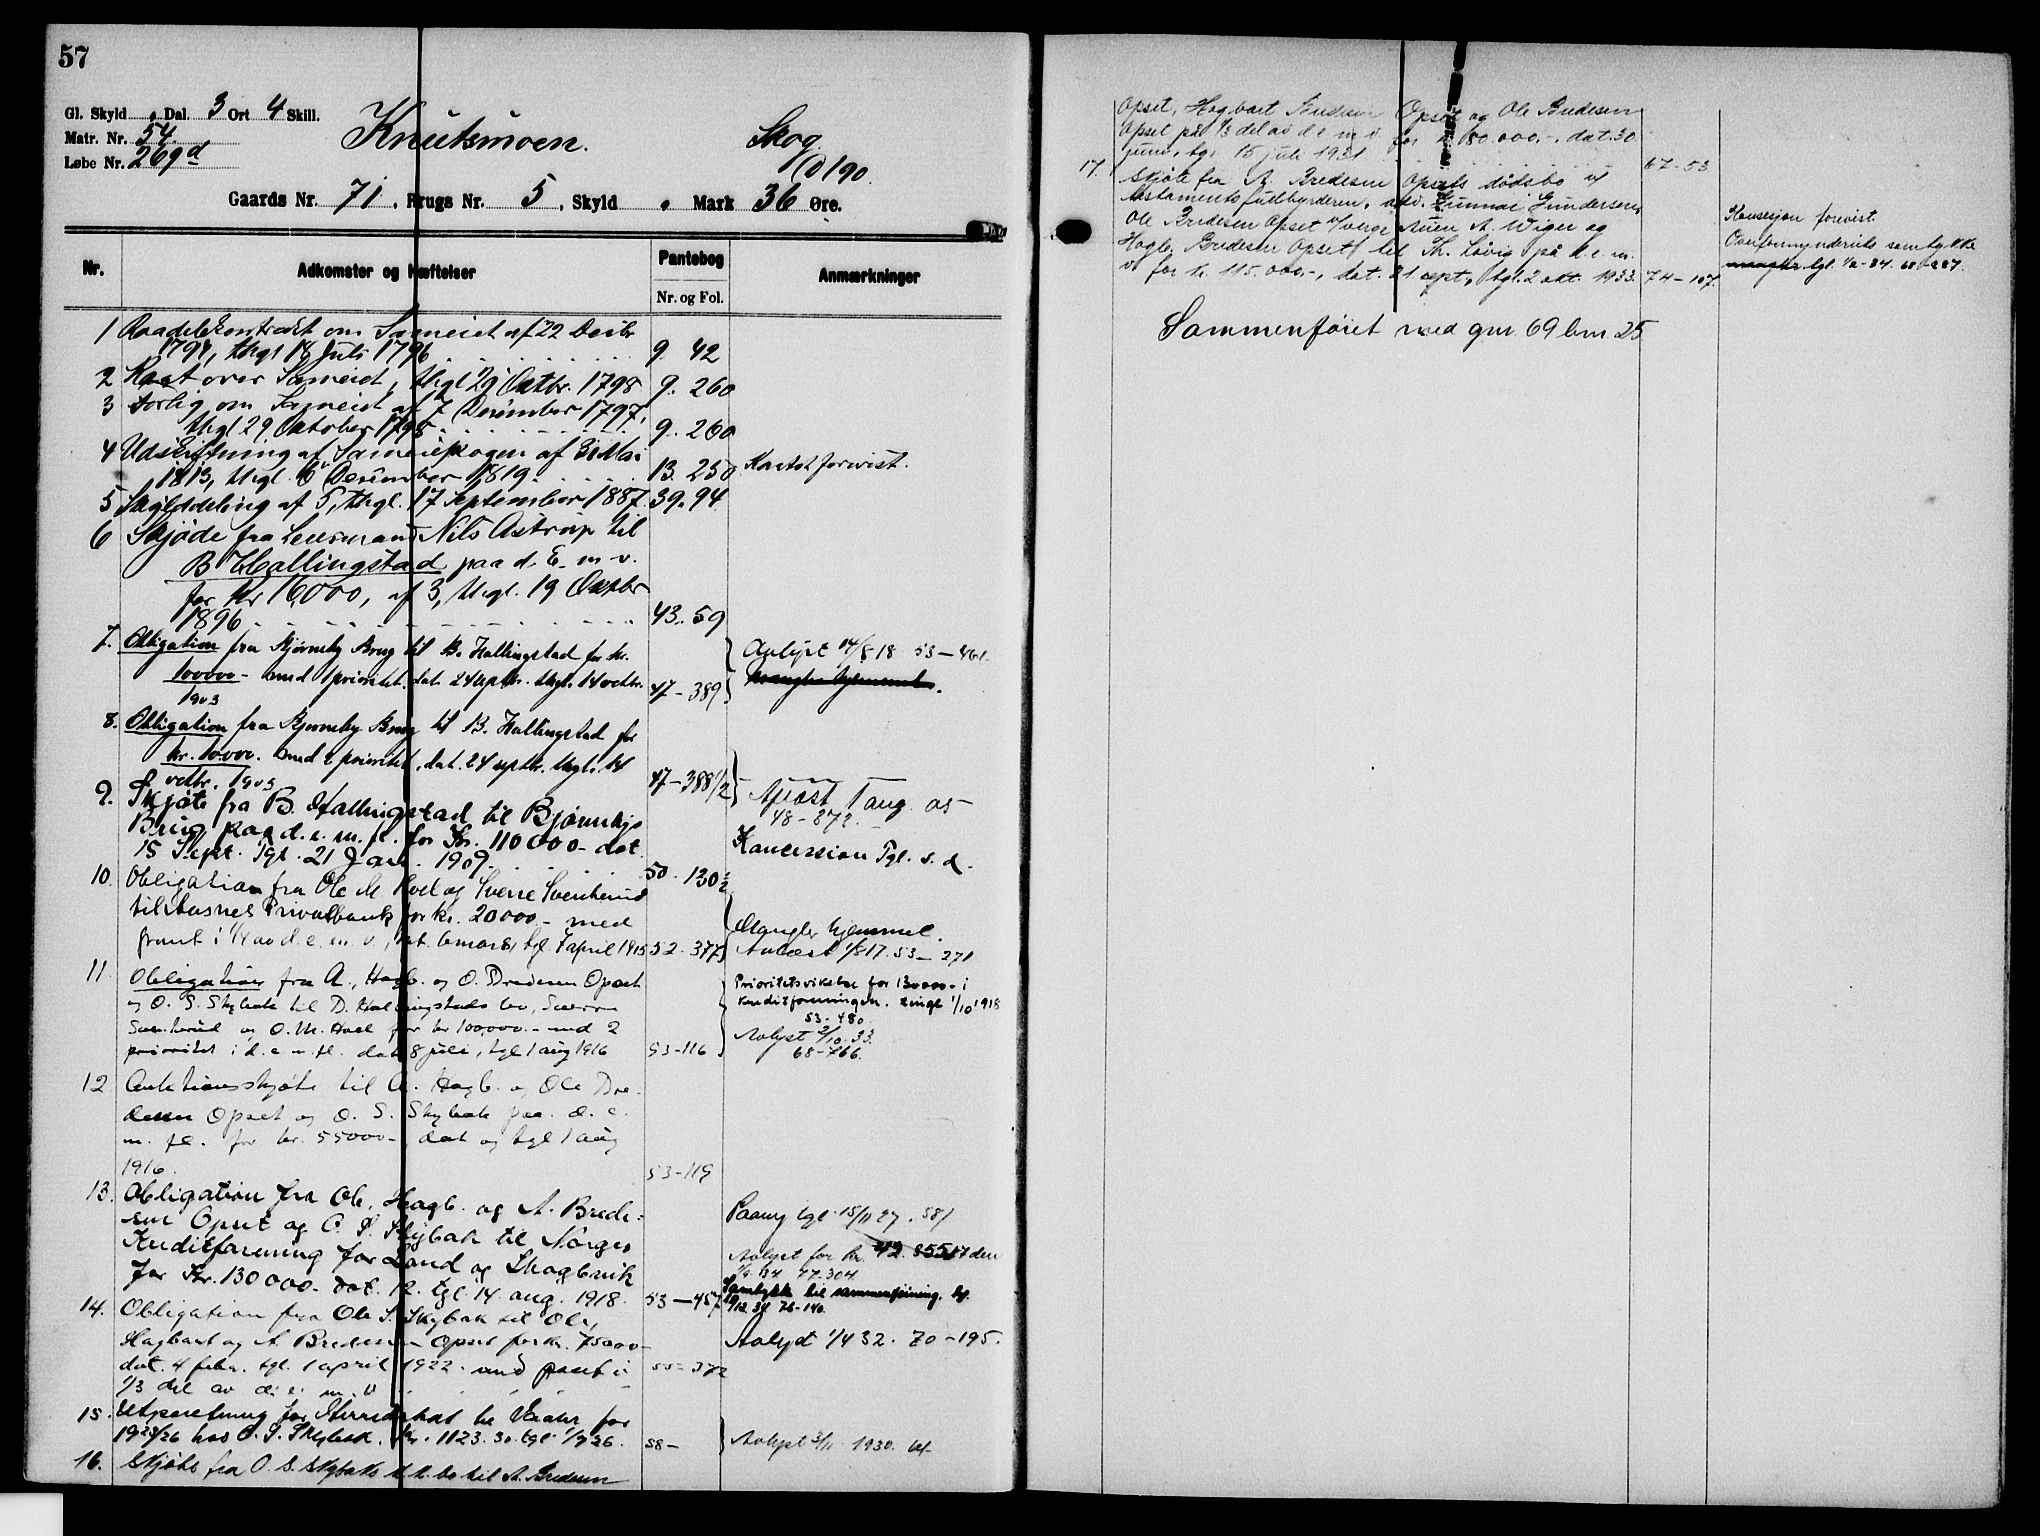 57
Gl. Skyld „ Dal. 3 Ort 4 Skill.
Matr. Nr. 54.
Løbe Nr. 269d
Knutsmoen.
Skog
Gaards Nr. 71, Brugs Nr. 5, Skyld „ Mark 36 Øre.
Nr.
Adkomster og Hæftelser
Pantebog
Nr. og Fol.
Anmærkninger
1 om Sameiet af 22 Decbr
1794, thgl 18 Juli 1796 9. 42
2 over Sameiet, thgl 29 Oktbr. 1798 9. 260
3 Forlig om Sameiet af 7 December 1797,
thgl 29 Oktober 1798 9. 260
4 Udskiftning af Sameieskogen af Mai
1813, thgl. 6 December 1819 13. 250 Kartet forevist.
5 Skylddeling af 5, thgl. 17 September 1887. 39. 94
6 Skjøde fra Nils Astrup til
B Hallingstad paa d. E. m. v.
for Kr 16,000, af 3, thgl. 19 Oktbr
1896 43. 59
7. Obligation fra Bjørneby Brug til B. Hallingstad for kr.
100000- med 1 prioritet. dat. 24 septbr. thgl. 14 octbr.
1903 47-389
Avlyst 14/8 18 53-461.
8. Obligation fra Bjørneby Brug til B. Hallingstad for
kr. 10000. med 2 prioritet, dat. 24 septbr. thgl. 14
octbr. 1903 47-388 1/2
Aflæst 1 aug. 05
48-372.
9. Skjøte fra B. Hallingstad til Bjørneby
Brug paa d. e. m. fl. for Kr. 110000- dat
15 Sept. Tgl. 21 Jan. 1909. 50. 130 1/2
Koncession Tgl. s. d.
10. Obligation fra Ole M Hoel og Sverre Svenkerud
til Aasnes Privatbank for kr. 20000- med
prior. i 1/4 av d. e. m. v., dat. 6 mars, tgl. 7 april 1915 52-377
Mangler hjemmel.
Avlæst 1/8 17. 53-271
11. Obligation fra A., Hagb. og O. Bredesen Opset
og O. S. Skybak til B. Hallingstads bo, Sverre
Svenkerud og O. M. Hoel for kr 100000.- med 2
prioritet i d. e. m. fl. dat 8 juli, tgl 1 aug 1916 53-116
Prioritetsvikelse for 130000- i
Kreditforeningen. tingl 1/10 1918
53-480.
Avlyst 2/10.33.
68-766.
12. Auktionsskjøte til A. Hagb. og Ole Bre-
desen Opset og O. S. Skybak paa d. e.
m. fl. for kr. 55000- dat og tgl 1 aug
1916. 53-119
13. Obligation fra Ole, Hagb. og A. Brede-
sen Opset og O. S. Skybak til Norges
Kreditforening for Land og Skogbruk
for Kr. 130000- dat. 12. tgl. 14. aug. 1918. 53-457
Paany tgl. 15/11 27. 58/
Avlyst for kr. 42. den
77-304
Samtykke til sammenføining.
76-140.
14. Obligation fra Ole S. Skybak til Ole,
Hagbart og A. Bredesen Opset for kr. 75000-
dat. 4 febr. tgl. 1 april 1922. med pant i
1/3 del av d. e. m. v 55-372
Avlyst 1/4 32. 70-195.
15. Utpantning for til Vaaler for
1925/26 hos O. S. Skybak. Kr. 1123.30. tgl. 58-
Avlyst 3/11 1930.
16. Skjøte fra O. S. Skybaks k. bo til A. Bredesen
Opset, Hagbart Bredesen Opset og Ole Bredesen
Opset på 1/3 del av d. e. m. v. for kr. 80.000.-, dat. 30
juni, tgl. 15 juli 1931 67-53
17. Skjøte fra A. Bredesen Opsets dødsbo v/
testamentsfullbyrderen, adv. Gunnar Gundersen,
Ole Bredesen Opset v/verge A. Wiger og
Hagb. Bredesen Opset til Th. Løvig på d. e. m.
v. for kr. 115.000.-, dat. 21 sept., tgl. 2 okt. 1933. 74-107.
Konsesjon forevist.
Overformynderiets samtykke
Sammenføiet med gnr. 69 bnr. 25